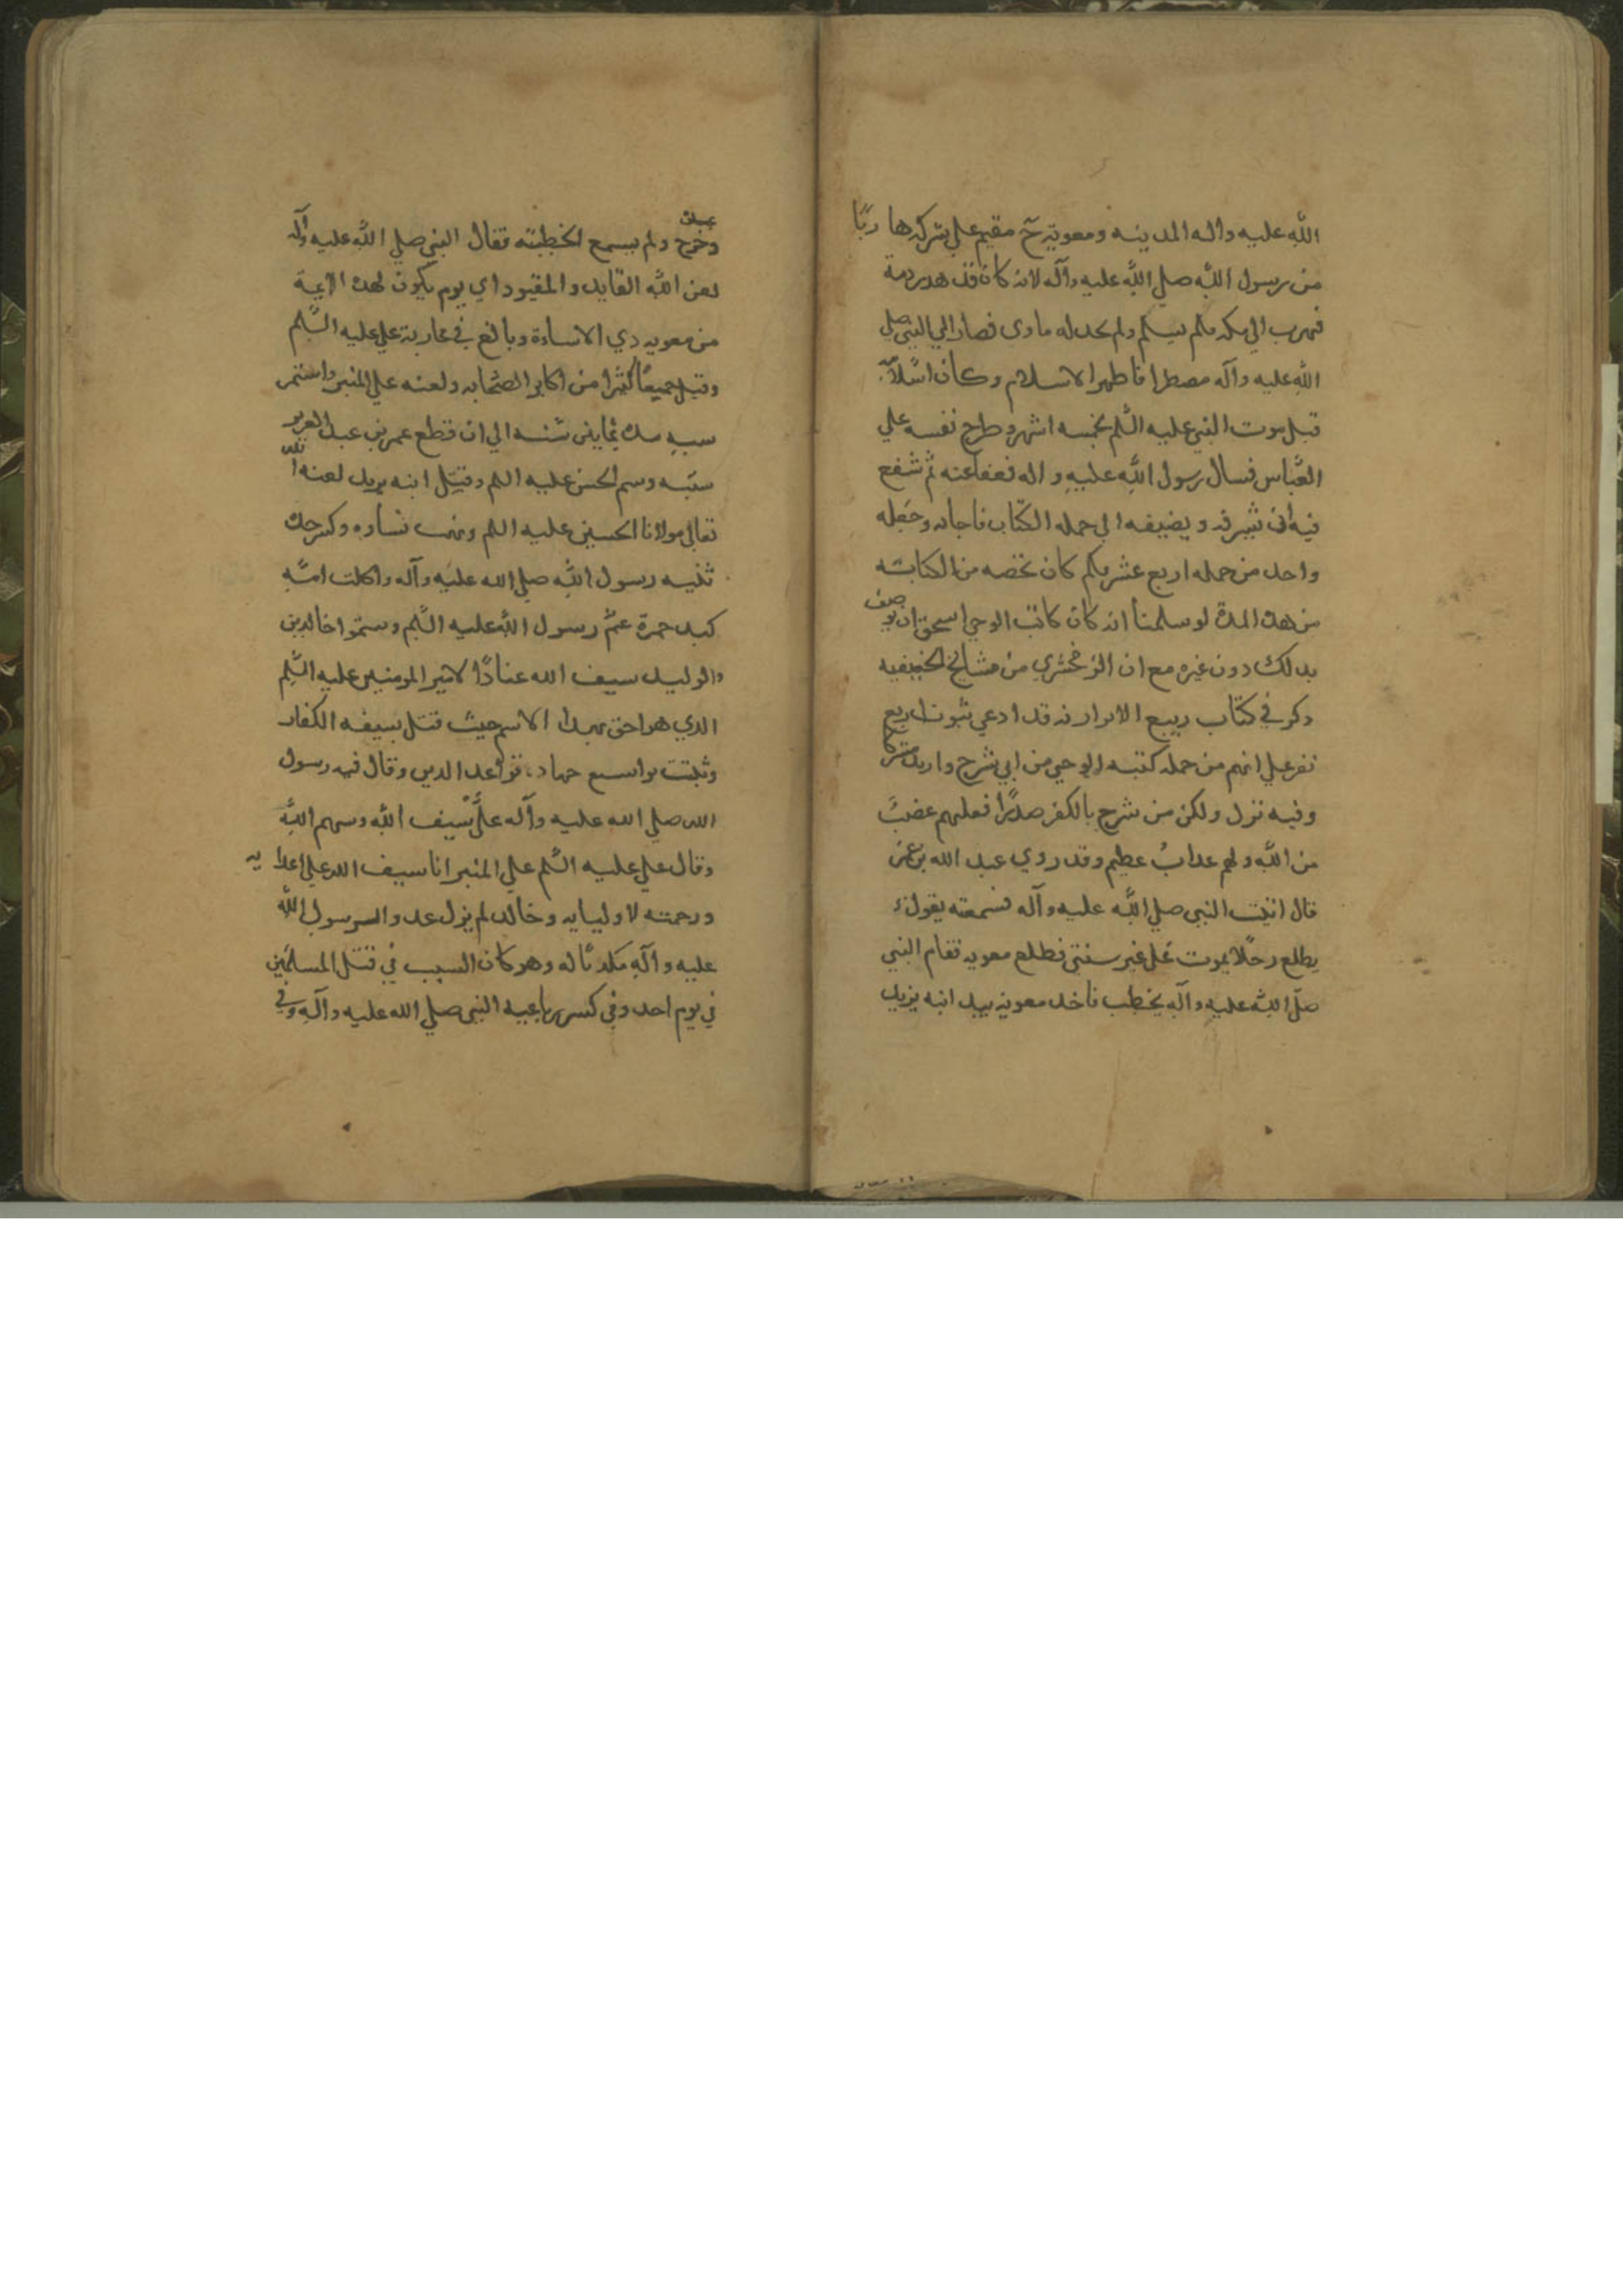 الله عليه واله المدينه ومعويه ح مقيم علي شركه هاربًا
من رسول الله صلي الله عليه وآله لانه كان قد هدر دمه
فهرب الي مكه فلم يسلم ولم يجد له ماوي فصار الي النبي صلي
الله عليه وآله مضطرا فاظهر الاسلام وكان اسلامه
قبل موت النبي عليه السّلم بخمسه اشهر وطرح نفسه علي
العبّاس فسال رسول الله عليه واله فعفا عنه ثم شفع
فيه ان يشرفه ويضيفه الي جمله الكتاب فاجابه وجعله
واحد من جمله اربع عشر فكم كان تخصه من الكتابته
من هذه المدة لو سلمنا انه كان كاتب الوحي استحق ان يوصف
بذلك دون غيره مع ان الزمخشري من مشايخ الحنيفيه
ذكر في كتاب ربيع الابرار انه قد ادعي نبوت اربع
نفر علي انهم من جمله كتبه الوحي من ابي شرح وارتد مشركا
وفيه نزل ولكن من شرح بالكفر صدرًا فعليهم غضبٌ
من الله ولهم عذابٌ عظيم وقد روي عبد الله بن عمر
قال اتيت النبي صلي الله عليه وآله فسمعته يقول
يطلع رجلًا يموت علي غير سنتي فطلع معويه فقام النبي
صلّي الله عليه وآله يخطب فاخذ معويه بيد ابنه يزيد
وخرج ولم يسمع الخطبته فقال النبي صلي الله عليه وآله
لعن الله القايد والمقيود اي يوم يكون لهذه الايمة
من معويه ذي الاساءة وبالغ في محاربة علي عليه السّلم
وقتل جميعًا كثيرا من اكابر الصّحابه ولعنه علي المنبر واستمر
سبه مدة ثمانين سنه الي ان قطع عمر بن عبد العزيز
سبّه وسم الحسن عليه السلم وقتل ابنه يزيد لعنه الله
تعالي مولانا الحسين عليه السلم ونهب نساوه وكسر جده
ثنيه رسول الله صلي الله عليه وآله واكلت امّه
كبد حمزة عمّ رسول الله عليه السّلم وسموا خالد بن
الوليد سيف الله عنادًا لامير المومنين عليه السّلم
الذي هو احق بهذا الاسم حيث قتل بسيفه الكفار
وثبتت بواسع جهاده قواعد الدين وقال فيه رسول
الله صلي الله عليه وآله عليٌّ سيف الله وسهم الله
وقال علي عليه السّلم علي المنبر انا سيف الله علي اعدايه
ورحمته لاوليايه وخالد لم يزل عدو الرسول الله
عليه وآله مكذبًا له وهو كان السبب في قتل المسلمين
في يوم احد وفي كسر رباعيه النبي صلي الله عليه وآله وفي